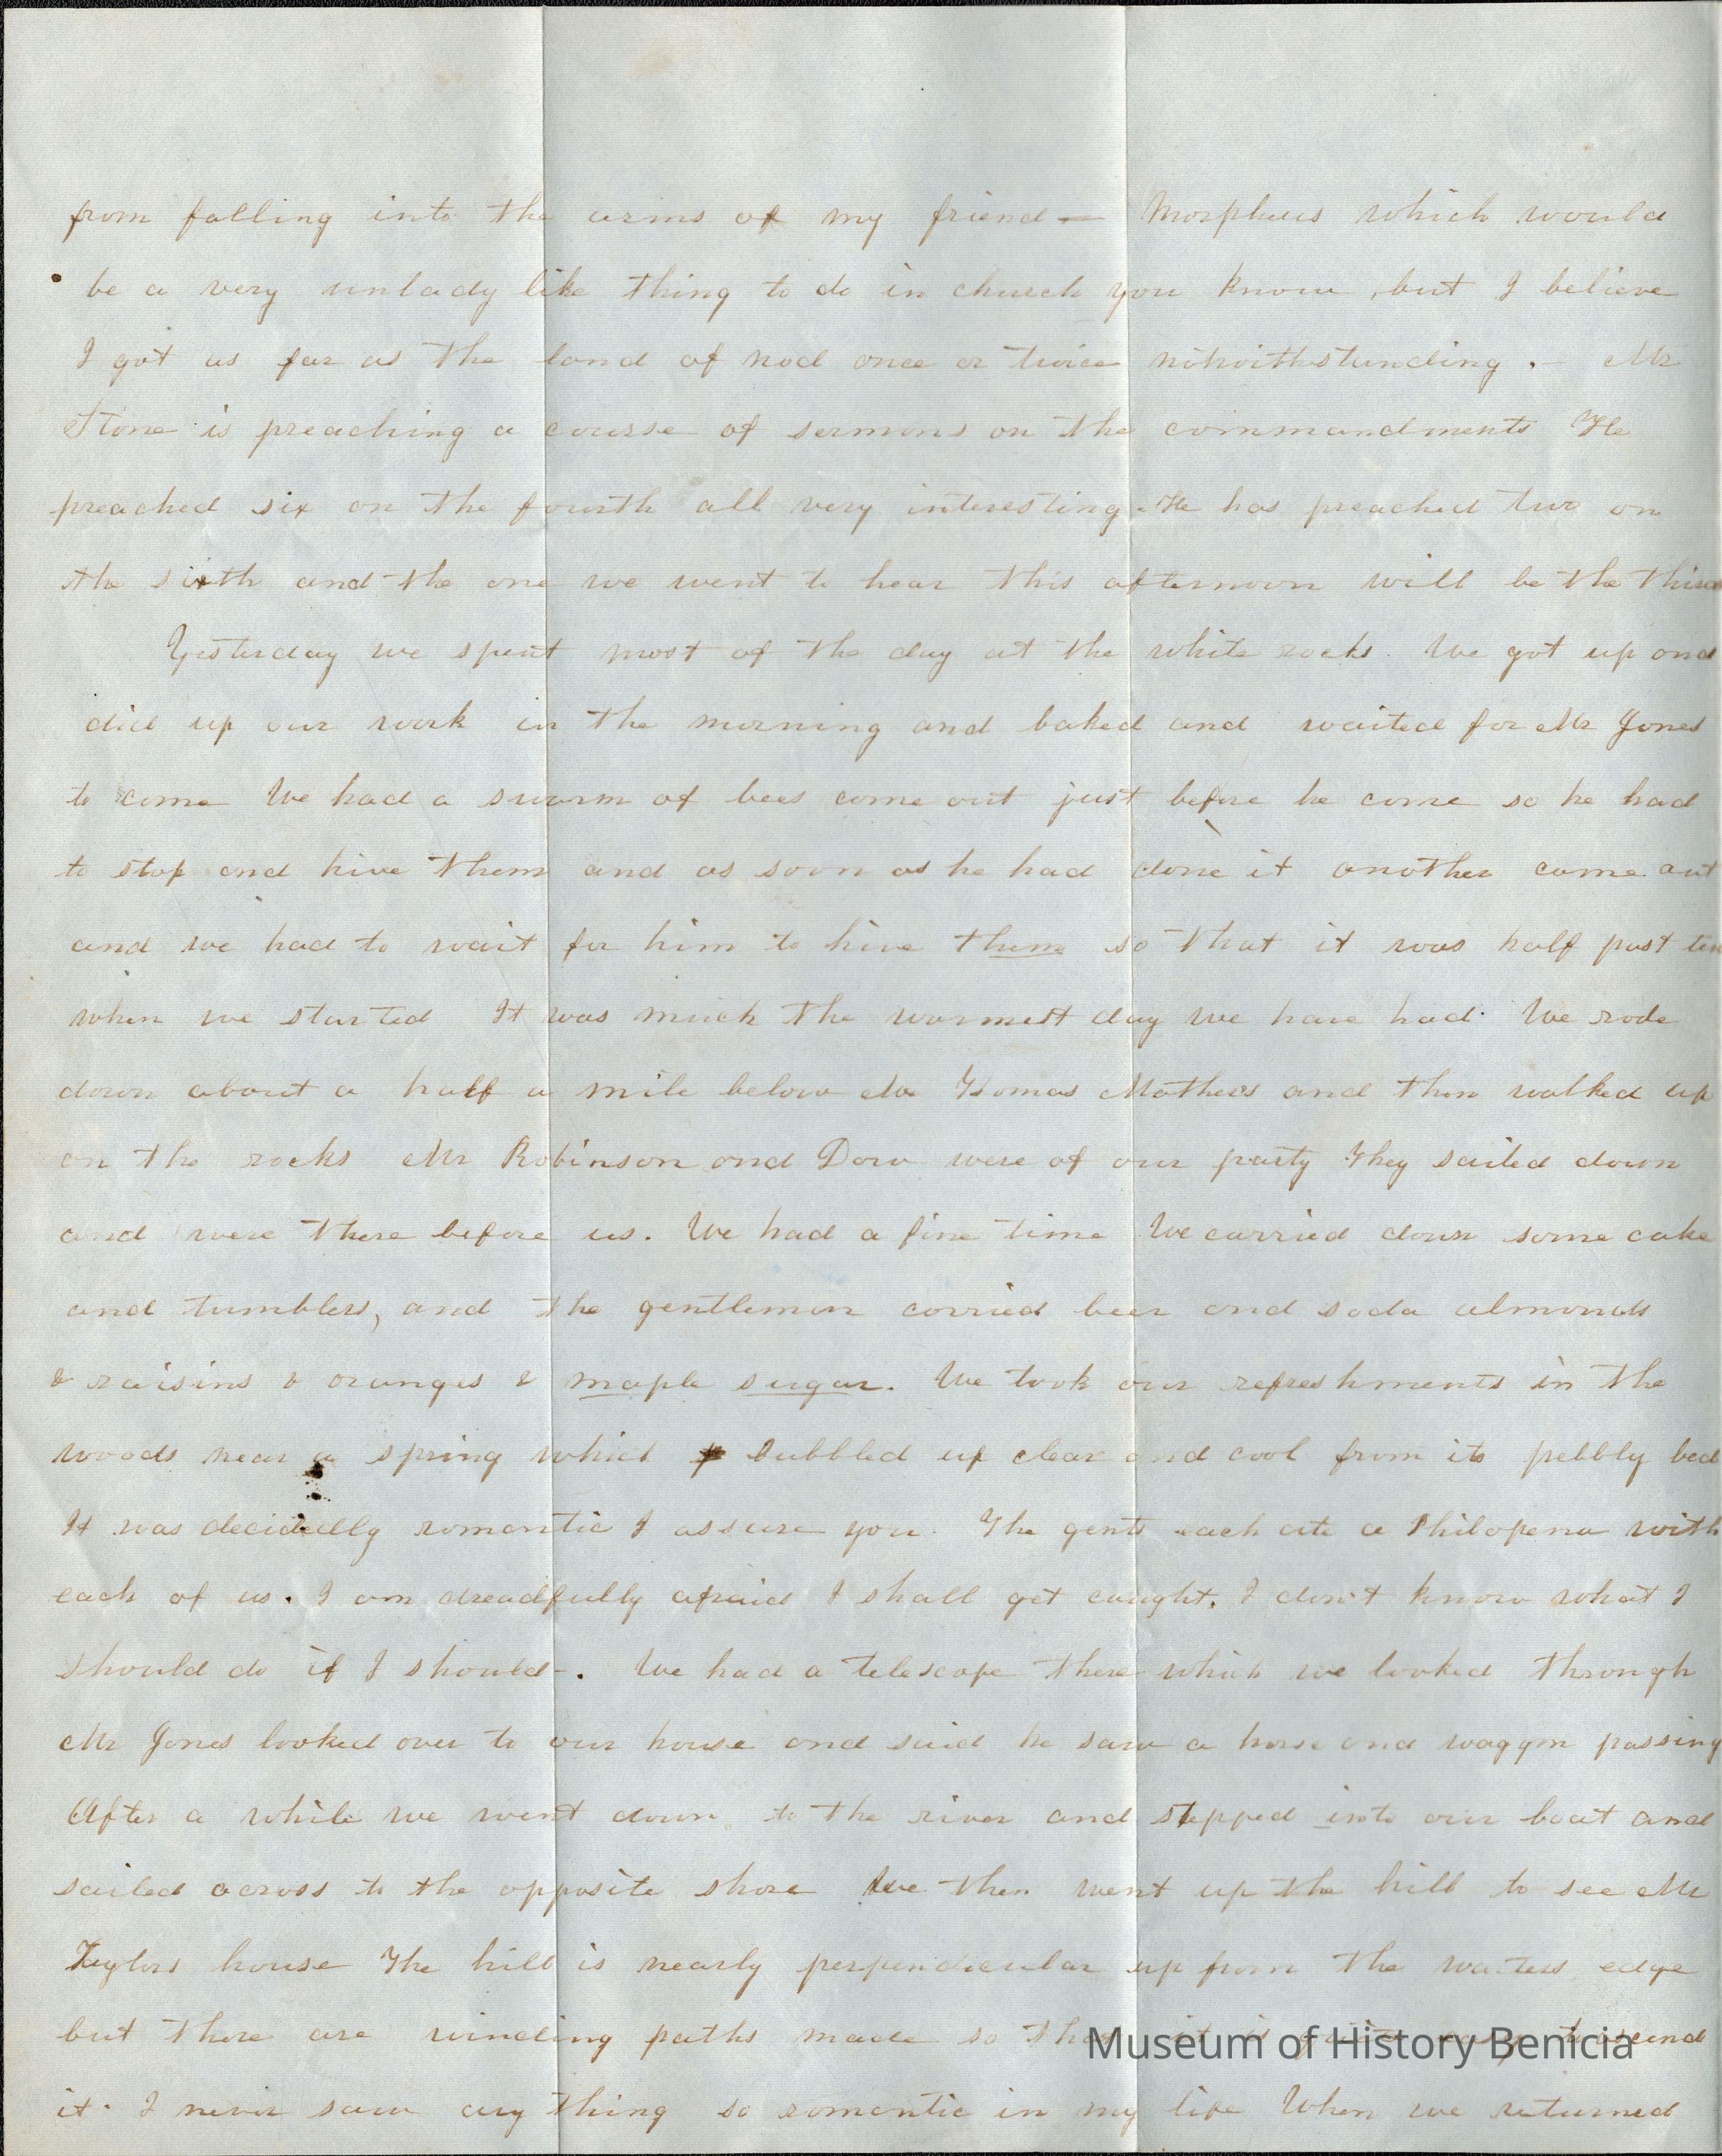 from falling into the arms of my friend — Morpheus which would
be a very unlady like thing to do in church you know, but I believe
I got as far as the land of nod once or twice notwithstanding. — Mr
Stone is preaching a course of sermons on the commandments He
preached six on the fourth all very interesting. He has preached two on
the sixth and the one we went to hear this afternoon will be the third
Yesterday we spent most of the day at the white rocks. We got up and
did up our work in the morning and baked and waited for Mr Jones
to come We had a swarm of bees come out just before he come so he had
to stop and hive them and as soon as he had done it another came out
and we had to wait for him to hive them so that it was half past ten
when we started It was much the warmest day we have had. We rode
down about a half a mile below Mr Thomas Mathers and then walked up
on the rocks Mr Robinson and Dow were of our party They sailed down
and were there before us. We had a fine time We carried down some cake
and tumblers, and the gentlemen carried beer and soda almonds
& raisins & oranges & maple sugar. We took our refreshments in the
woods near a spring which bubbled up clear and cool from its pebbly bed
It was decidedly romantic I assure you. The gents each ate a Philopena with
each of us. I am dreadfully afraid I shall get caught, I don't know what I
should do if I should-. We had a telescope there which we looked through
Mr Jones looked over to our house and said he saw a horse and waggon passing
After a while we went down to the river and stepped into our boat and
sailed across to the opposite shore We then went up the hill to see Mr
Taylors house The hill is nearly perpendicular up from the waters edge
but there are winding paths made so that it is quite easy to ascend
it. I never saw any thing so romantic in my life When we returned
Museum of History Benicia